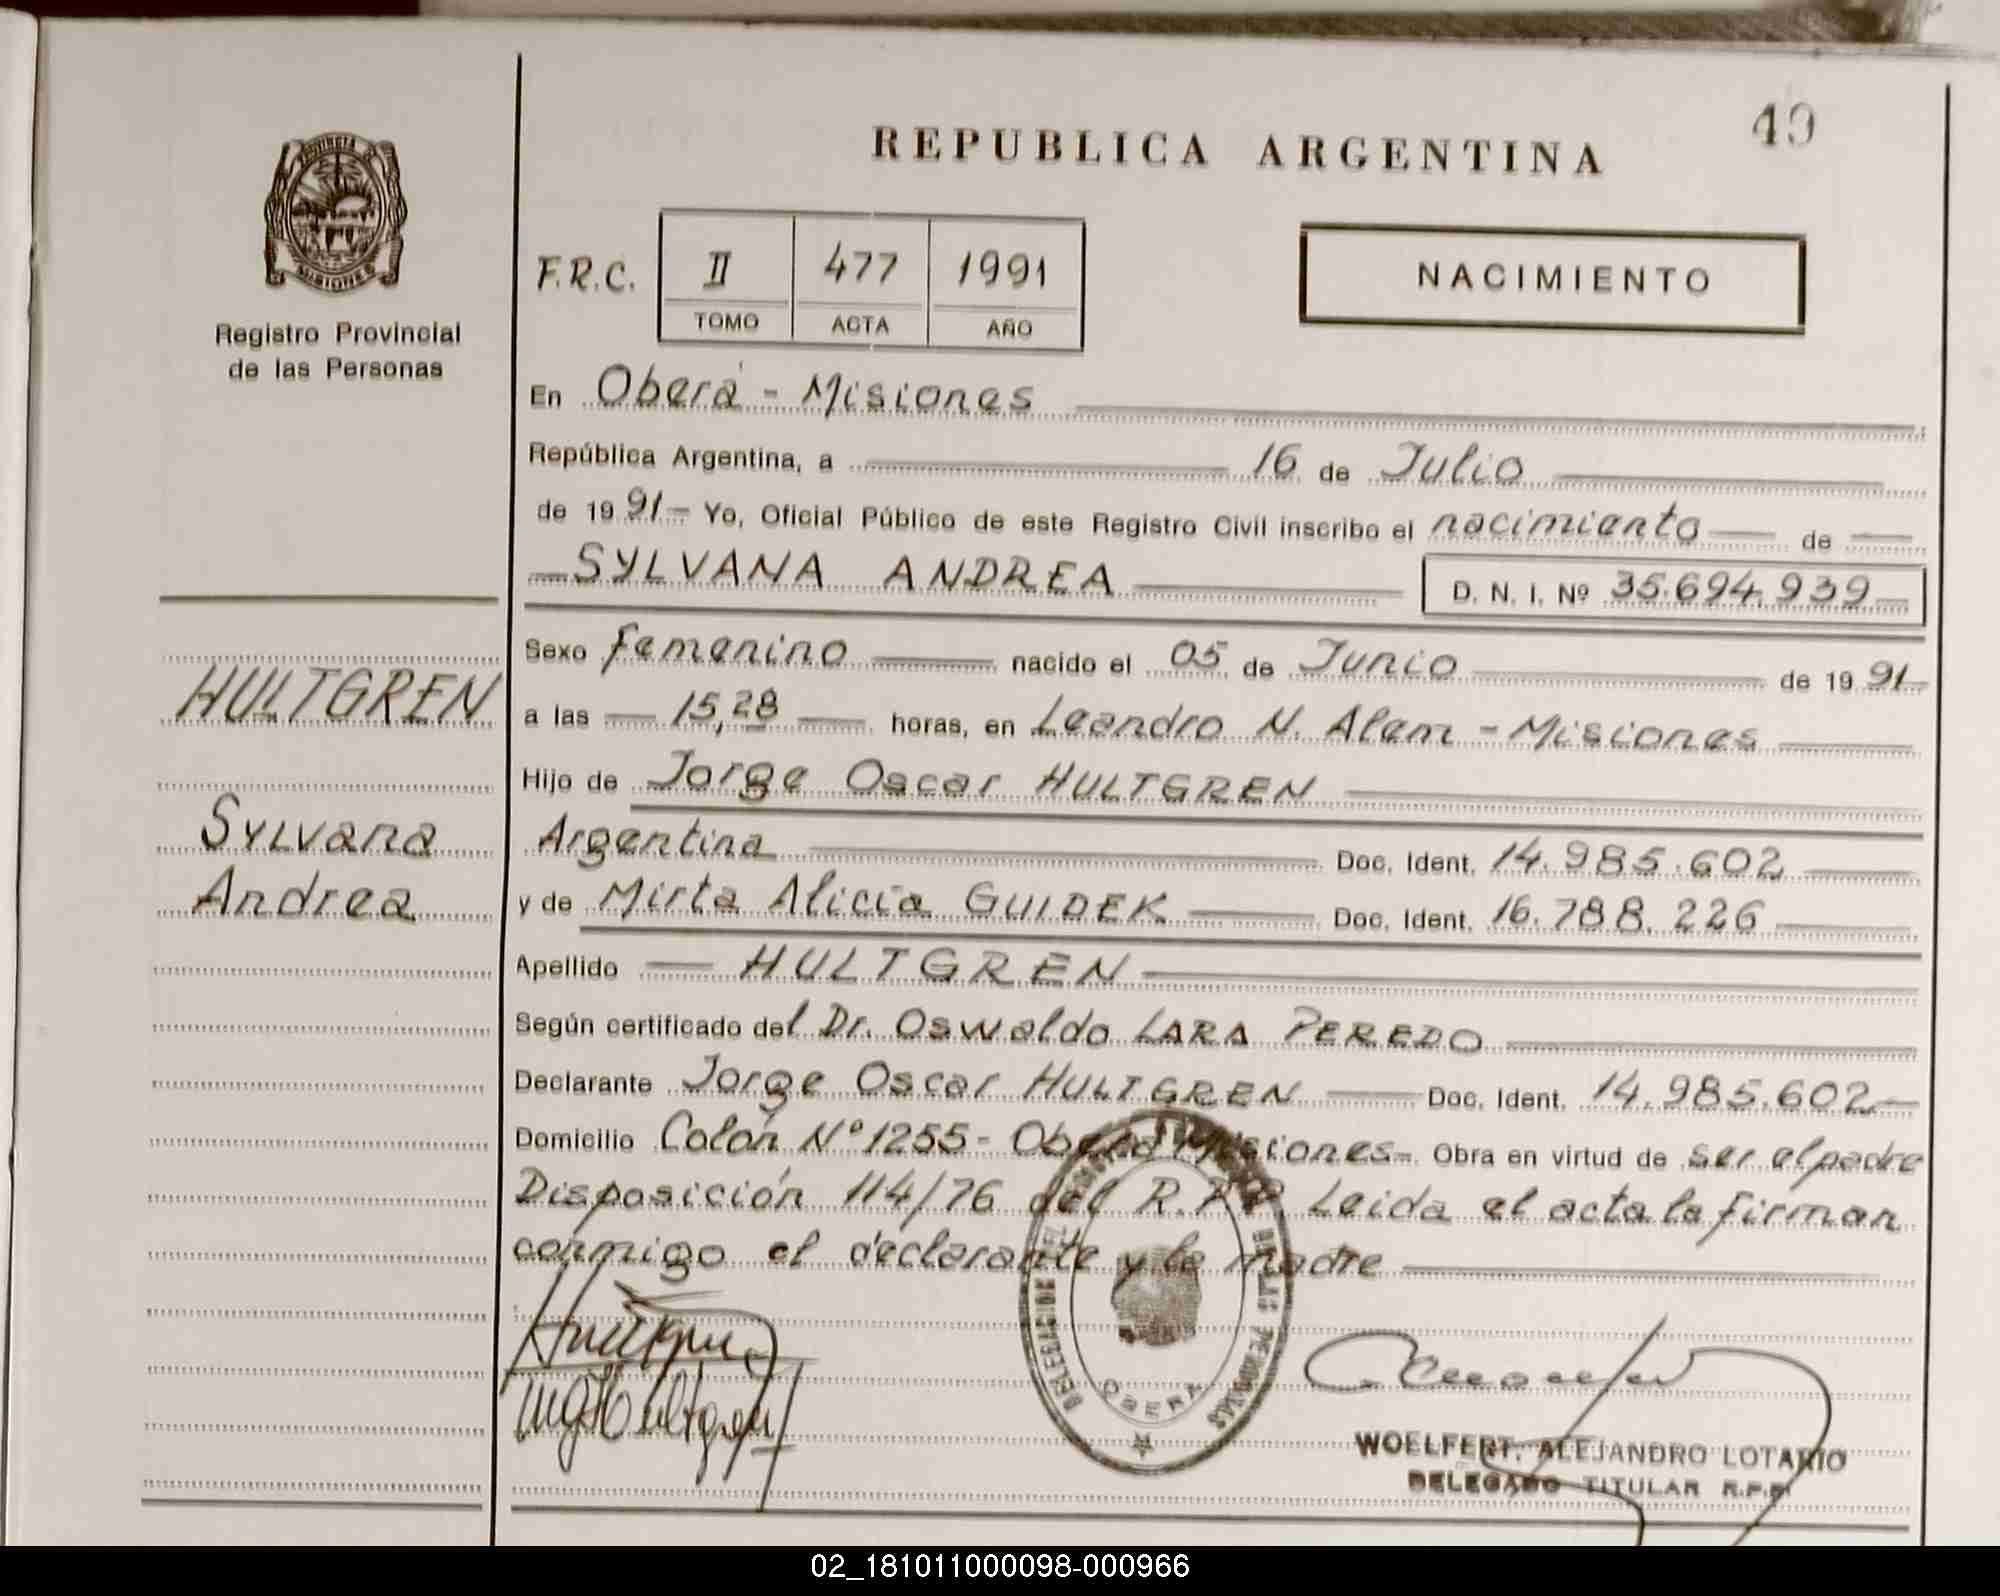 REPUBLICA ARGENTINA
49
PROVINCIA
MISIONES
Registro Provincial
de las Personas
F.R.C.
II
477
1991
TOMO
ACTA
AÑO
NACIMIENTO
En Oberá - Misiones
República Argentina, a 16 de Julio
de 19 91- Yo, Oficial Público de este Registro Civil inscribo el nacimiento de
SYLVANA ANDREA
D. N. I. Nº 35.694.939
Sexo femenino nacido el 05 de Junio de 19 91
a las 15,28 horas, en Leandro N. Alem - Misiones
Hijo de Jorge Oscar HULTGREN
Argentina Doc. Ident. 14.985.602
y de Mirta Alicia GUIDEK Doc. Ident. 16.788.226
Apellido HULTGREN
Según certificado del Dr. Oswaldo LARA PEREDO
Declarante Jorge Oscar HULTGREN Doc. Ident. 14.985.602
Domicilio Colón Nº 1255- Oberá Misiones- Obra en virtud de ser el padre
Disposición 114/76 del R.P.P. Leida el acta la firman
conmigo el declarante y la madre
HULTGREN
Sylvana
Andrea
OBERA
WOELFERT, ALEJANDRO LOTARIO
DELEGADO TITULAR R.P.P.
02_181011000098-000966